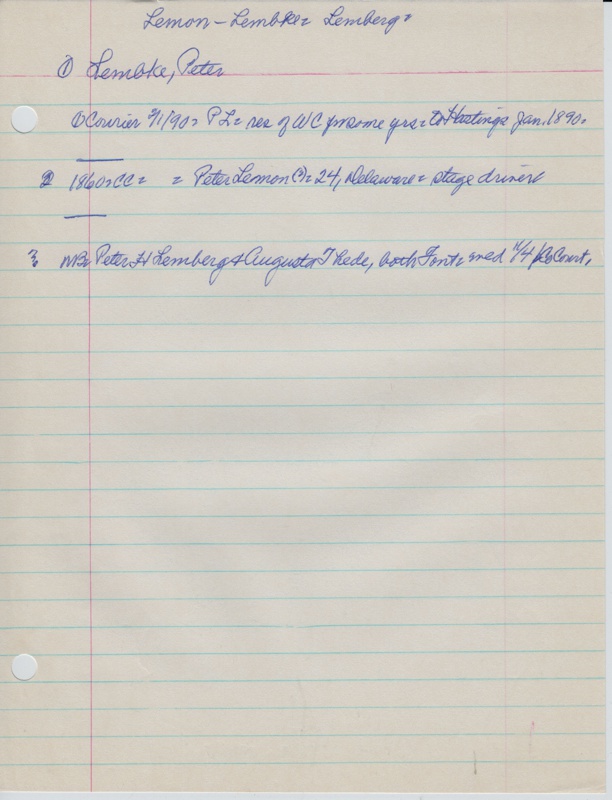 Lemon - Lembke = Lemberg =
① Lembke, Peter
① Courier 2/1/90 = PL = res of WC for some yrs = to Hastings Jan. 1890.
2 1860 = CC = = Peter Lemon (?) = 24, Delaware = stage driver
3 MB = Peter H Lemberg & Augusta Thede, both Font = med 11/4/ Co Court.